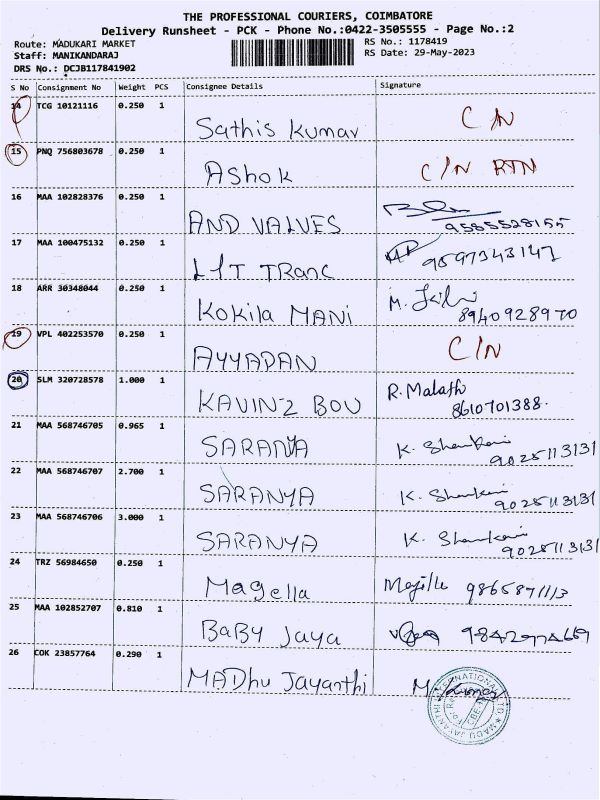 THE PROFESSIONAL COURIERS, COIMBATORE
Delivery Runsheet - PCK - Phone No.:0422-3505555 - Page No.:2
Route: MADUKARI MARKET RS No.: 1178419
Staff: MANIKANDARAJ RS Date: 29-May-2023
DRS No.: DCJB117841902
S No Consignment No Weight PCS Consignee Details Signature
14 TCG 10121116 0.250 1 Sathis Kumar C/N
15 PNQ 756803678 0.250 1 Ashok C/N RTN
16 MAA 102828376 0.250 1 AND VALVES 9585528155
17 MAA 100475132 0.250 1 L&T TRanc 9597343147
18 ARR 30348044 0.250 1 Kokila MANi 8940928970
19 VPL 402253570 0.250 1 AYYAPAN C/N
20 SLM 320728578 1.000 1 KAVINZ BOU R. Malath 8610701388.
21 MAA 568746705 0.965 1 SARANYA K. Shankari 9025113131
22 MAA 568746707 2.700 1 SARANYA K. Shankari 9025113131
23 MAA 568746706 3.000 1 SARANYA K. Shankari 9025113131
24 TRZ 56984650 0.250 1 Magella 9865871113
25 MAA 102852707 0.810 1 BaBY Jaya 9842974669
26 COK 23857764 0.290 1 MADhu Jayanthi